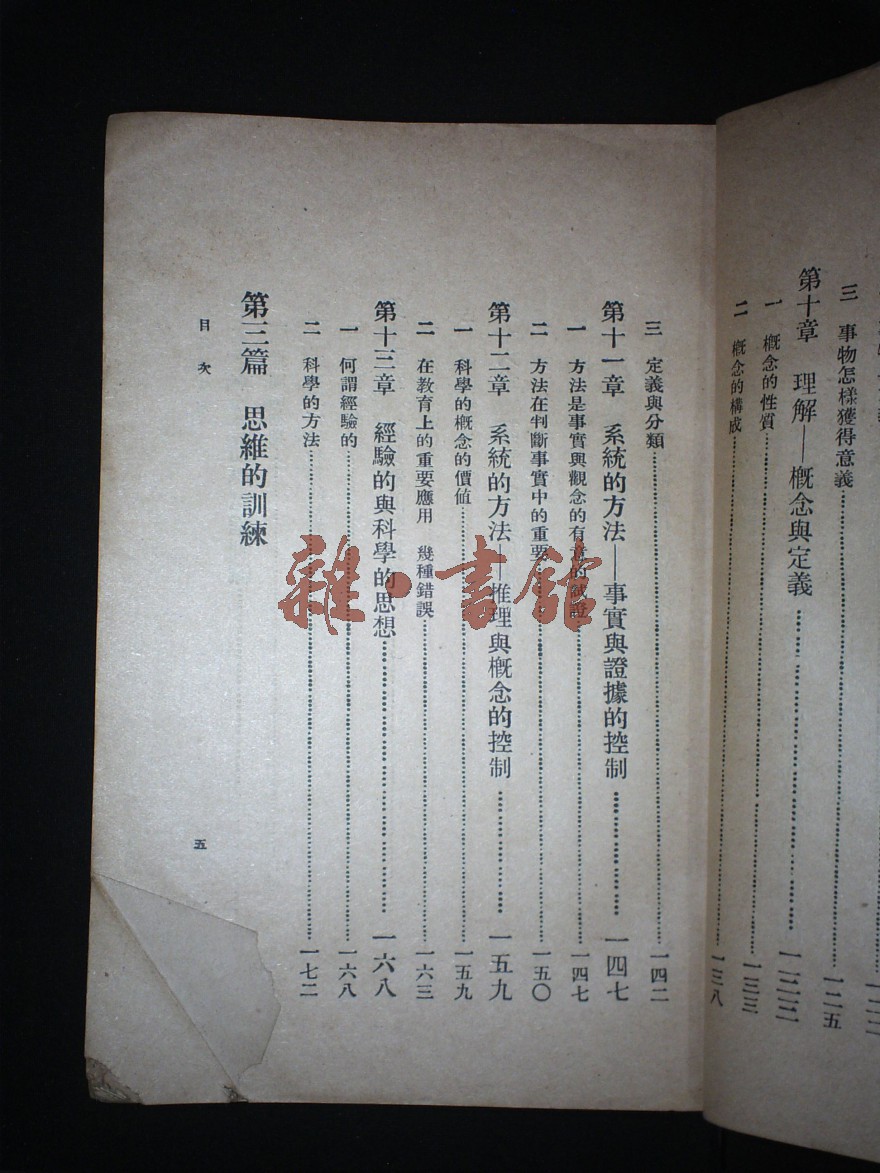 三 事物怎樣獲得意義……一二五
第十章 理解——概念與定義……一三三
一 概念的性質……一三三
二 概念的構成……一三八
三 定義與分類……一四二
第十一章 系統的方法——事實與證據的控制……一四七
一 方法是事實與觀念的有意的試證……一四七
二 方法在判斷事實中的重要……一五〇
第十二章 系統的方法——推理與概念的控制……一五九
一 科學的概念的價值……一五九
二 在教育上的重要應用 幾種錯誤……一六三
第十三章 經驗的與科學的思想……一六八
一 何謂經驗的……一六八
二 科學的方法……一七二
第三篇 思維的訓練
目次
五
雜·書館